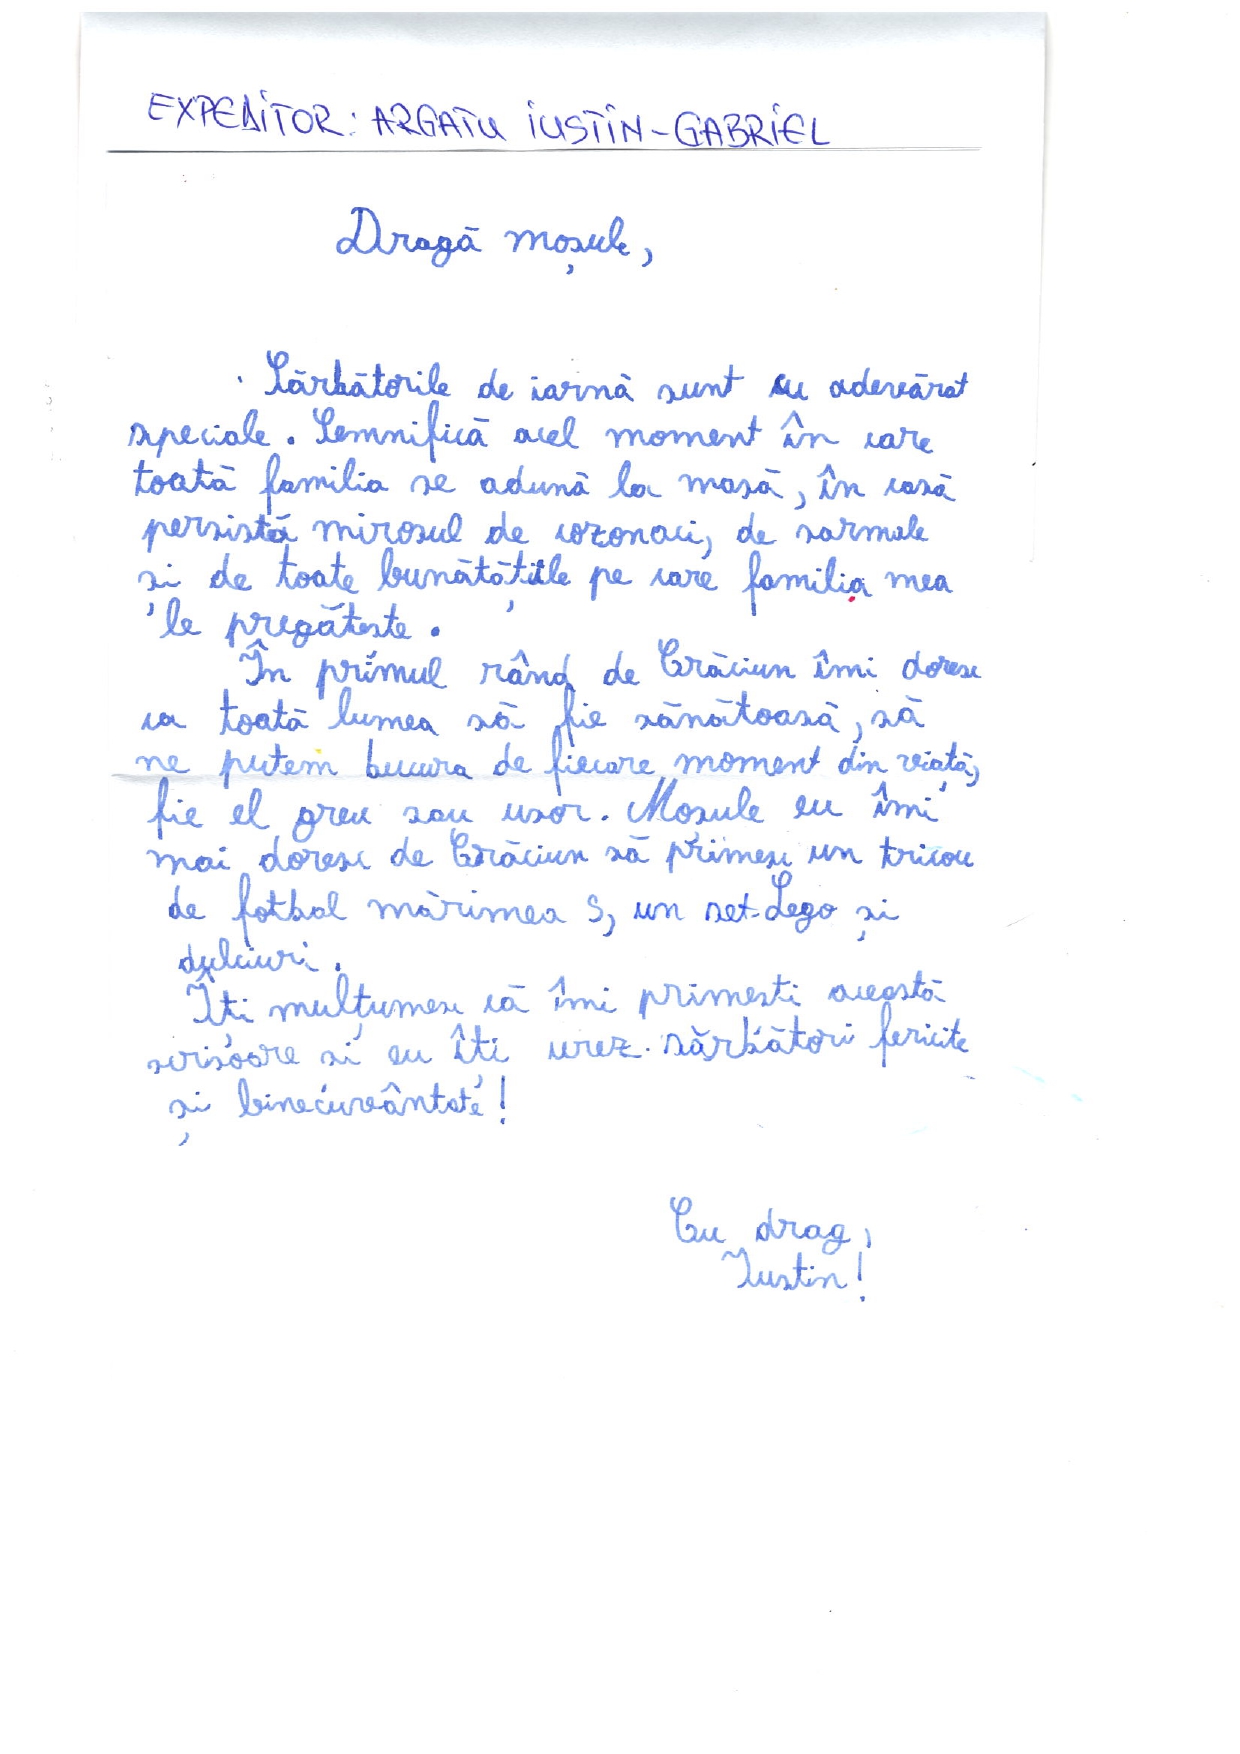 EXPEDITOR: ARGATU IUSTIN-GABRIEL
Dragă moșule,
Sărbătorile de iarnă sunt cu adevărat
speciale. Semnifică acel moment în care
toată familia se adună la masă, în casă
persistă mirosul de cozonaci, de sarmale
și de toate bunătățile pe care familia mea
le pregătește.
În primul rând de Crăciun îmi doresc
ca toată lumea să fie sănătoasă, să
ne putem bucura de fiecare moment din viață,
fie el greu sau ușor. Moșule eu îmi
mai doresc de Crăciun să primesc un tricou
de fotbal mărimea S, un set Lego și
dulciuri.
Îți mulțumesc că îmi primești această
scrisoare și eu îți urez sărbători fericite
și binecuvântate!
Cu drag,
Iustin!